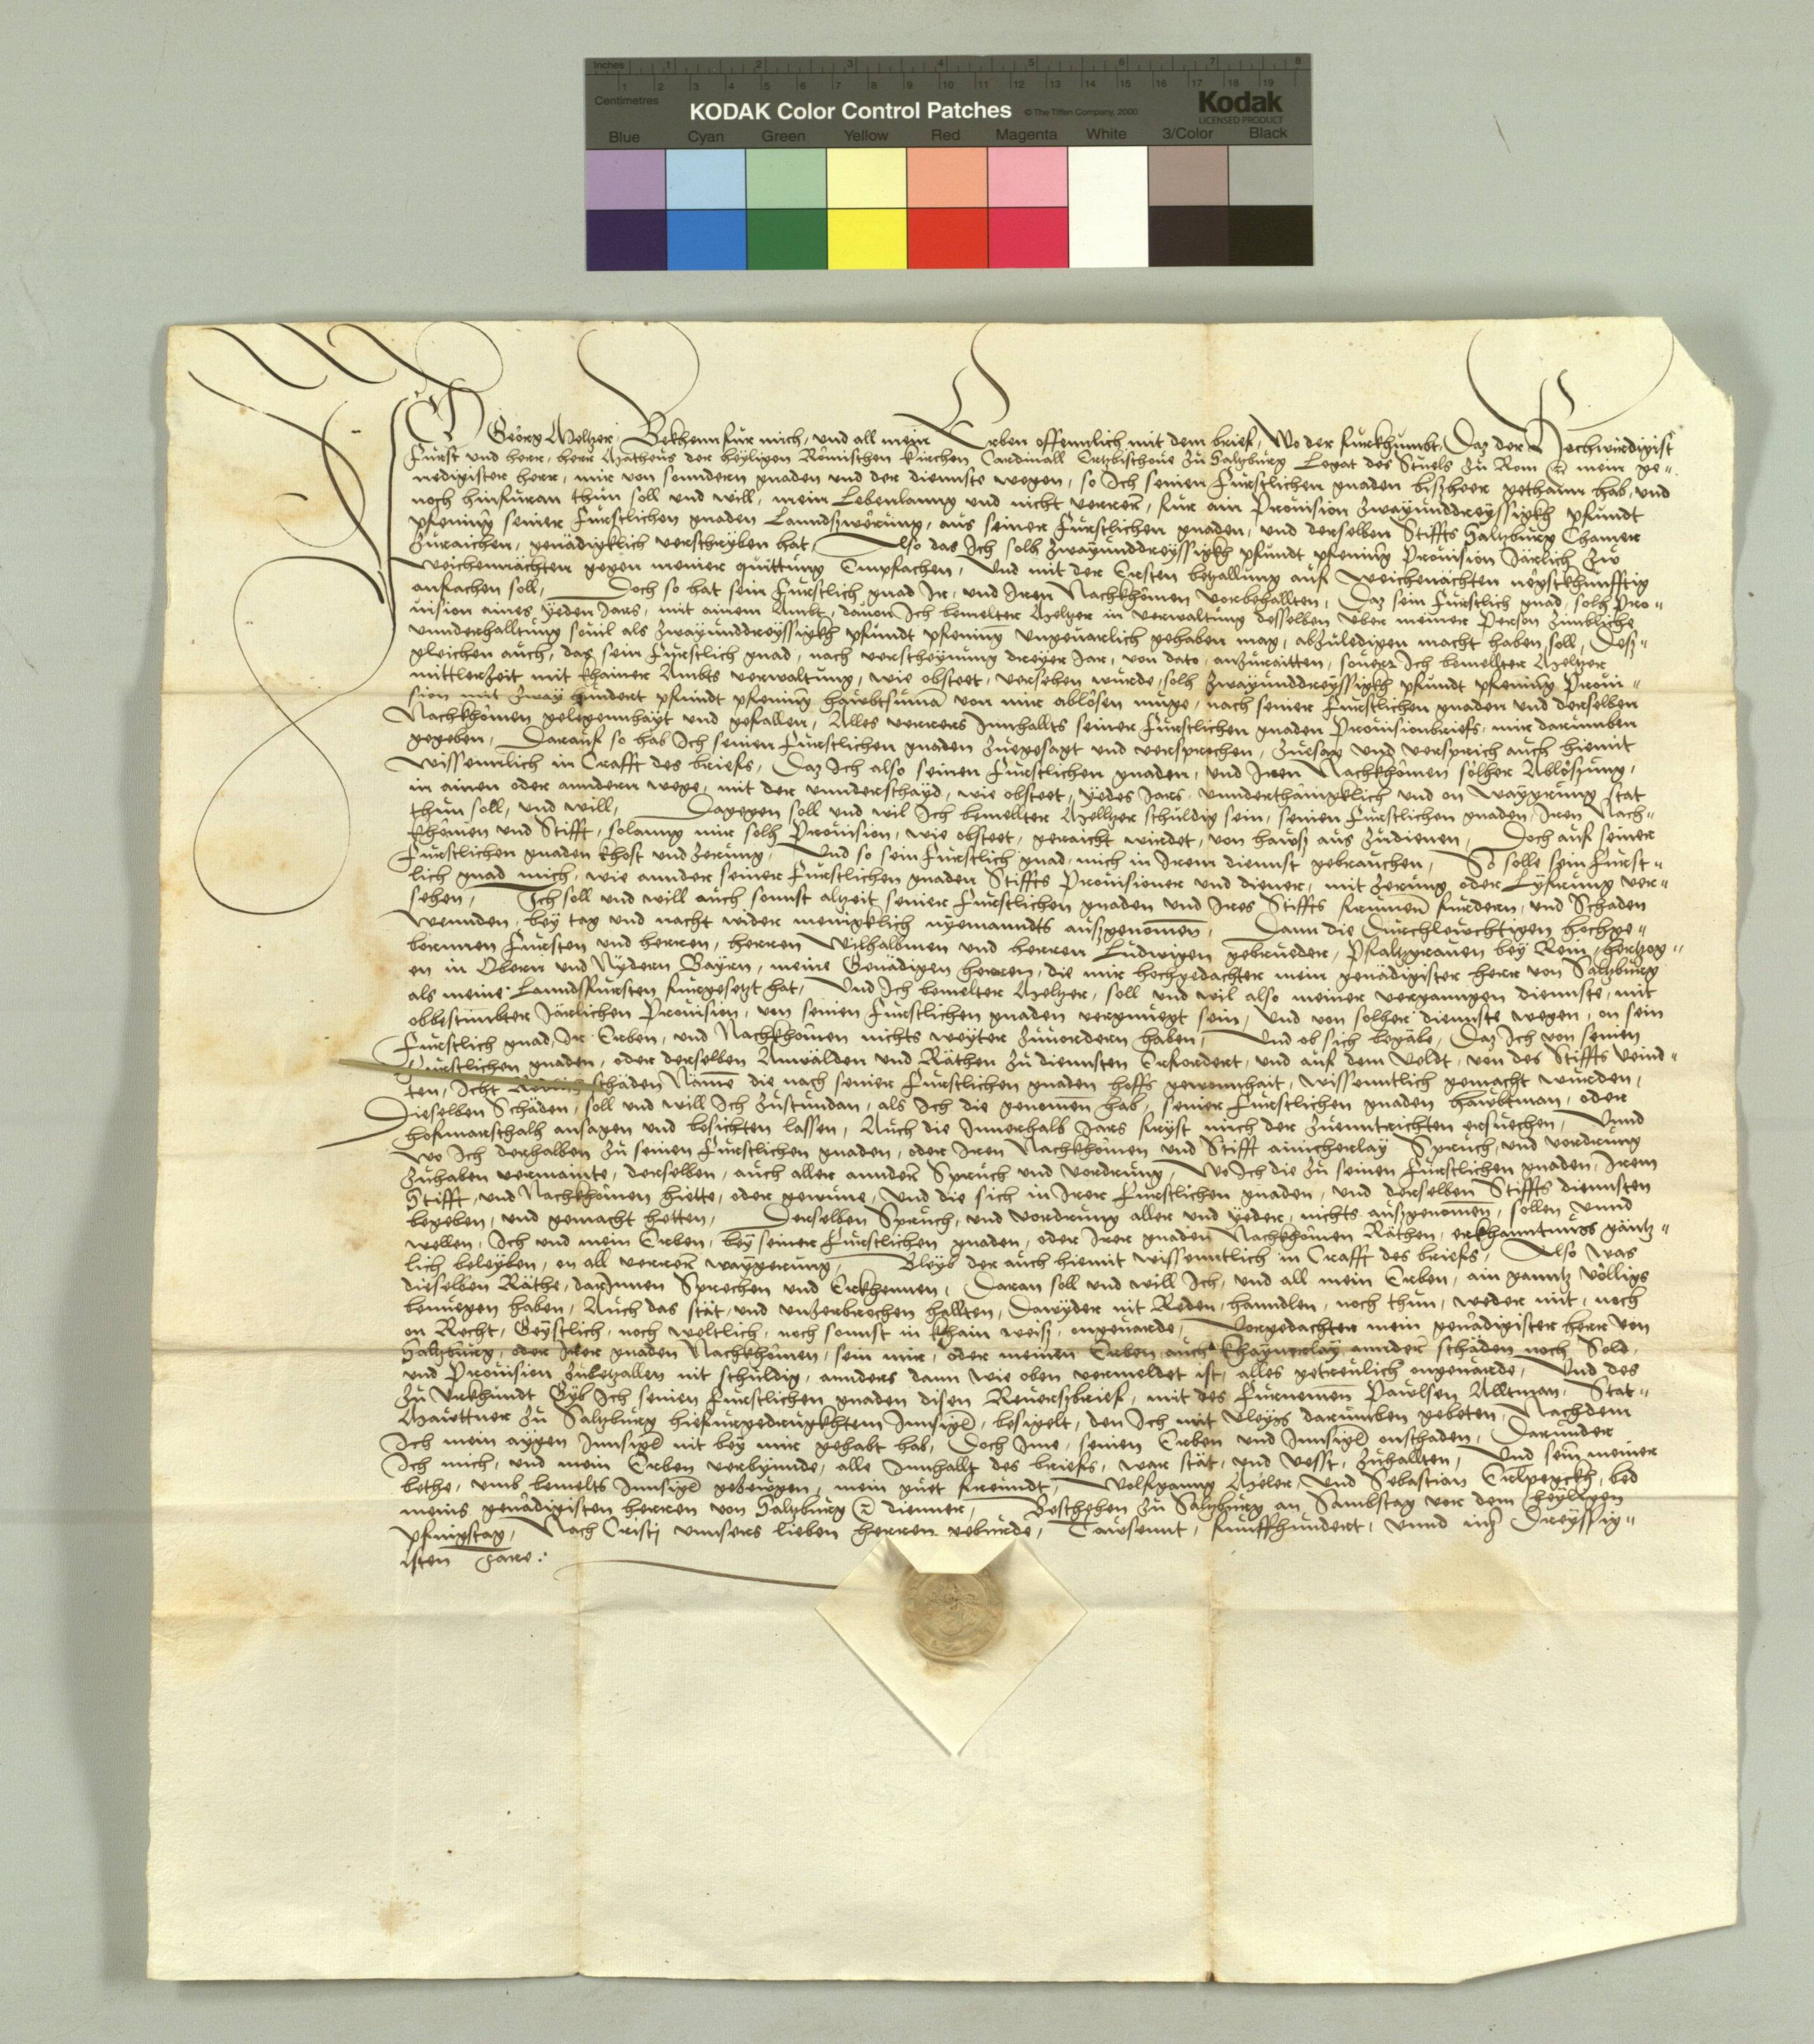 Inches 1 2 3 4 5 6 7 8
1 2 3 4 5 6 7 8 9 10 11 12 13 14 15 16 17 18 19
Centimetres
KODAK Color Control Patches © The Tiffen Company, 2000 Kodak
LICENSED PRODUCT
Blue Cyan Green Yellow Red Magenta White 3/Color Black
Ich Georg Meltzer, Bekhenn fur mich, und all mein Erben offennlich mit dem brief, Wo der furkhumbt, Daz der Hochwirdigist
Fürst und herr, herr Matheus der heyligen Römischen Kirchen Cardinall Ertzbischoue zu Saltzburg Legat des Stuels zu Rom mein ge-
nedigister herr, mir von sonndern gnaden und der diennste wegen, so Ich seinen Fürstlichen gnaden bißheer gethann hab, und
noch hinfüran thun soll und will, mein Lebenlanng und nicht verrer, für ain Prouision Zwayunddreyssigkh pfundt
pfening seiner Fürstlichen gnaden Lanndßwerung, aus seiner Fürstlichen gnaden, und derselben Stiffts Saltzburg Chamer
zuraichen, genädigklich verschryben hat, Also das Ich solh Zwayunddreyssigkh pfundt pfening Prouision Järlich zu
Weichennächten gegen meiner quittung Empfachen, Und mit der Ersten betzallung auf Weichenächten negstkhunfftig
anfachen soll, Doch so hat sein Fürstlich gnad Ir, und Iren Nachkhömen vorbehallten, Daz sein Fürstlich gnad, solh Pro-
uision aines yeden Jars, mit ainem Ambt, dauon Ich bemelter Meltzer in verwaltung desselben über meiner Person zimbliche
unnderhalltung souil als Zwayunddreyssigkh pfundt pfening ungeuarlich gehaben mag, abzuledigen macht haben soll, Deß-
gleichen auch, das sein Fürstlich gnad, nach verscheynung dreyer Jar, von dato anzuraitten, souerr Ich bemellter Meltzer
mittlerzeit mit khainer Ambts verwaltung, wie obsteet, versehen wurde, solh Zwayunddreyssigkh pfundt pfening Proui-
sion mit Zway hundert pfundt pfening haubtsuma von mir ablösen muge, nach seiner Fürstlichen gnaden und derselben
Nachkhömen gelegennhayt und gefallen, Alles verrers Innhallts seiner Fürstlichen gnaden Prouisionbriefs, mir darumben
gegeben, Darauf so hab Ich seinen Fürstlichen gnaden Zuegesagt und versprochen, Zuesag und versprich auch hiemit
Wissenntlich in Crafft des briefs, Daz Ich also seinen Fürstlichen gnaden, und Iren Nachkhömen sölher Ablößung,
in ainen oder anndern wege, mit der unnderschayd, wie obsteet, yedes Jars, unnderthänigklich und on waygrung stat
thun soll, und will, Dagegen soll und wil Ich bemellter Melltzer schuldig sein, seinen Fürstlichen gnaden, Iren Nach-
khömen und Stifft, solanng mir solh Prouision, wie obsteet, geraicht wirdet, von hawß aus zudienen, Doch auf seiner
Fürstlichen gnaden khost und zerung, Und so sein Fürstlich gnad, mich in Irem diennst gebrauchen, So solle sein Fürst-
lich gnad mich, wie annder seiner Fürstlichen gnaden Stiffts Prouisioner und diener, mit zerung oder Lyfrung ver-
sehen, Ich soll und will auch sonnst altzeit seiner Fürstlichen gnaden und Ires Stiffts frummen furdern, und Schaden
wennden, bey tag und nacht wider menigklich nyemanndts außgenomen, Dann die Durchleuchtigen hochge-
bornnen Fürsten und herren, herren Wilhalbmen und herren Ludwigen gebrueder, Pfaltzgrauen bey Rein, hertzog-
en in Obern und Nydern Bayrn, meine Genädigen herren, die mir hochgedachter mein genädigister herr von Saltzburg
als meine Lanndsfürsten fürgesetzt hat, Und Ich bemelter Meltzer, soll und wil also meiner verganngen diennste, mit
obbestimbter Järlichen Prouision, von seinen Fürstlichen gnaden vergnuegt sein, Und von solher diennste wegen, on sein
Fürstlich gnad, Ir Erben, und Nachkhömen nichts weyter zuuordern haben, Und ob sich begäbe, Daz Ich von seinen
Fürstlichen gnaden, oder derselben Anwälden und Räthen zu diennsten Erfordert, und auf dem Veldt, von des Stiffts Veind-
ten, Icht schäden Name die nach seiner Fürstlichen gnaden hoffs gewonnhait, wissenntlich gemacht wurden,
Dieselben Schäden, soll und will Ich zustundan, als Ich die genomen hab, seiner Fürstlichen gnaden hawbtman, oder
hofmarschalh ansagen und besichten lassen, Auch die Innerhalb Jars fryst mich der zuenntrichten ersuechen, Unnd
Wo Ich derhalben zu seinen Fürstlichen gnaden, oder Iren Nachkhömen und Stifft ainicherlay Spruch, und vordrung
zuhaben vermainte, derselben, auch aller annder Spruch und vordrung, Wo Ich die zu seinen Fürstlichen gnaden, Irem
Stifft, und Nachkhömen hiette, oder gewune, Und die sich in Irer Fürstlichen gnaden, und derselben Stiffts diennsten
begeben, und gemacht hetten, Derselben Spruch, und vordrung aller und yeder, nichts außgenomen, sollen unnd
wellen, Ich und mein Erben, bey seiner Fürstlichen gnaden, oder Irer gnaden Nachkhömen Räthen, erkhanntnuss gäntz-
lich beleyben, on all verrer waygerung, Bleyb der auch hiemit wissenntlich in Crafft des briefs, Also was
dieselben Räthe, darInnen Sprechen und Erkhennen, Daran soll und will Ich, und all mein Erben, ain ganntz völligs
benuegen haben, Auch das stät, und unzerbrochen hallten, Dawyder nit Reden, hanndlen, noch thun, weder mit, noch
on Recht, Geystlich, noch weltlich, noch sonnst in khain weiß, ongeuarde, Vorgedachter mein genädigister herr von
Saltzburg, oder Irer gnaden Nachkhömen, sein mir, oder meinen Erben auch khaynerlay annder schäden noch Sold,
und Prouision zubetzallen nit schuldig, annders dann wie oben vermeldet ist, alles getreulich ongeuärde, Und des
zu Urkhundt Gyb Ich seinen Fürstlichen gnaden disen Reuerßbrief, mit des Furnemen Paulsen Alltman, Stat-
Mauttner zu Saltzburg hiefurgedrugkhtem Innsigl, besigelt, den Ich mit vleyss darumben gebeten, Nachdem
Ich mein aygen Innsigl nit bey mir gehabt hab, Doch Ime, seinen Erben und Innsigl onschaden, Darunder
Ich mich, und mein Erben verbynnde, alle Innhallt des briefs, war stät, und vesst, zuhallten, Und sein meiner
bethe, umb bemelts Innsigl gezeugen, mein guet freundt, Wolfganng und Sebastian bed
meins genädigisten herren von Saltzburg diener, Beschehen zu Saltzburg an Sambstag vor dem heyligen
Pfingstag, Nach Cristj unnsers lieben herren geburde, Tausennt, funffhundert, unnd im Dreyssig-
isten Jare: